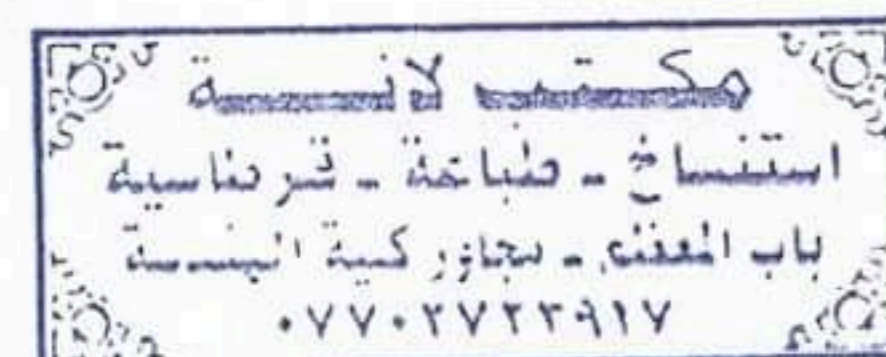 مكتب لانسة
استنساخ - طباعة - قرطاسية
باب المعظم - مجاور كلية الهندسة
٠٧٧٠٢٧٢٣٩١٧